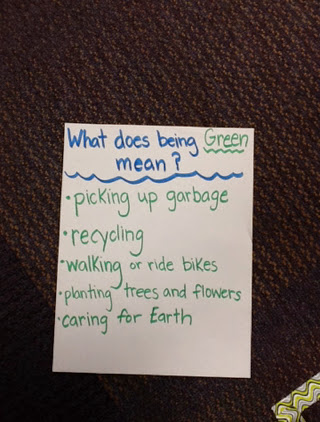 What does being Green
mean?
• picking up garbage
• recycling
• walking or ride bikes
• planting trees and flowers
• caring for Earth